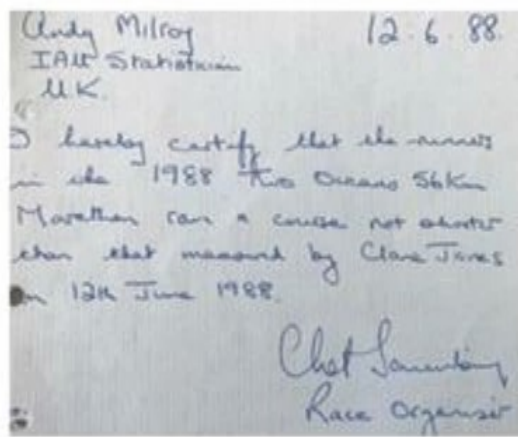 Andy Milroy 12.6.88.
IAU Statistician
U.K.
I hereby certify that the runners
in the 1988 Two Oceans 56km
Marathon ran a course not shorter
than that measured by Clare Jones
on 12th June 1988.
Chet
Race Organiser